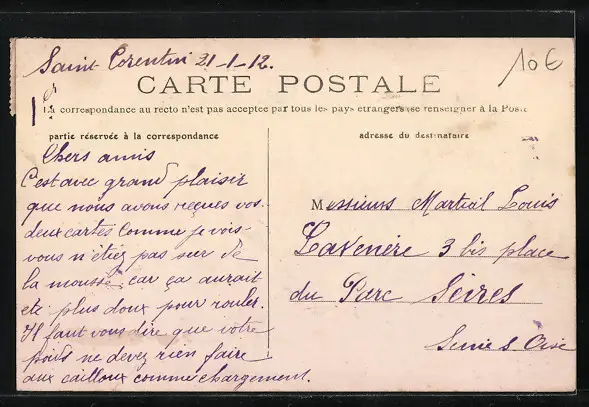 Saint Corentin 21-1-12.
10€
CARTE POSTALE
La correspondance au recto n'est pas acceptee par tous les pays etrangers (se renseigner à la Poste
partie réservée à la correspondance
adresse du destinataire
Chers amis
C'est avec grand plaisir
que nous avons reçues vos
deux cartes comme je vois
vous n'étiez pas sur de
la mousse, car ça aurait
ete plus doux pour rouler.
Il faut vous dire que votre
poids ne devez rien faire
aux cailloux comme chargement.
Messieurs Martial Louis
Lavenère 3 bis place
du Parc Sèvres
Seine & Oise